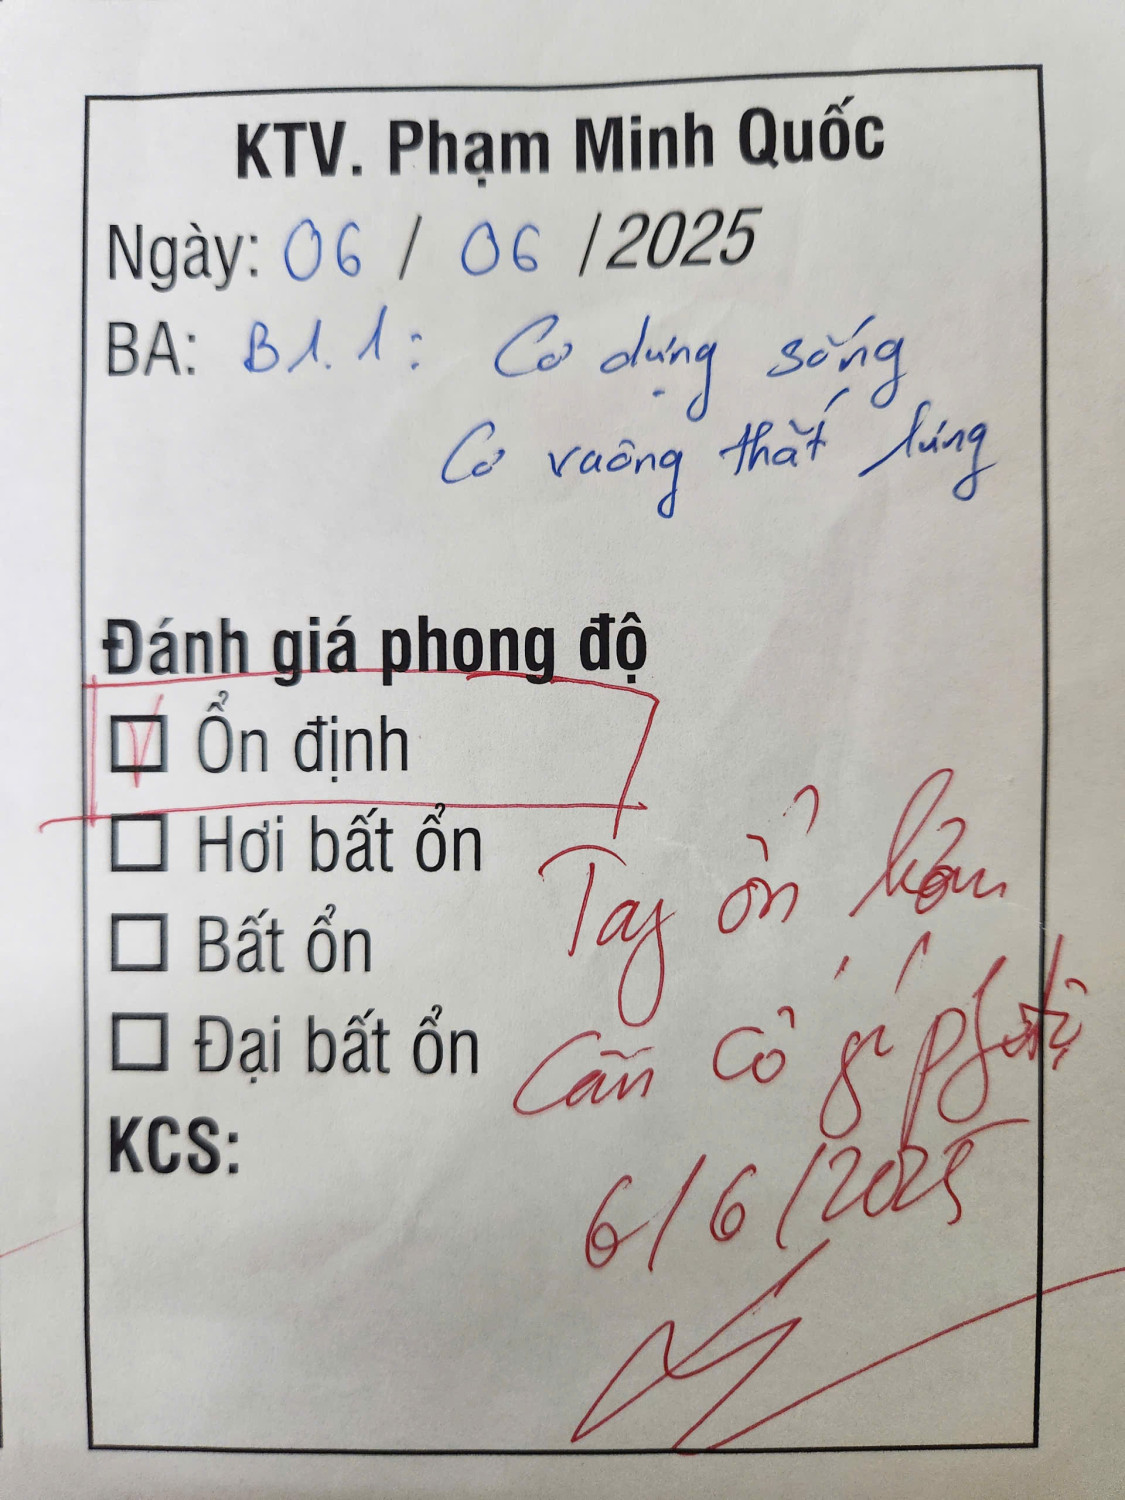 KTV. Phạm Minh Quốc
Ngày: 06 / 06 / 2025
BA: B1.1: Cơ dựng sống
Cơ vuông thắt lưng
Đánh giá phong độ
Ổn định
Hơi bất ổn
Bất ổn
Đại bất ổn
Tay ổn hơn
Cần cố gì
KCS:
6/6/2025